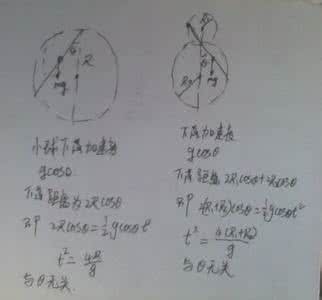 θ
R
mg
小球下落加速度
gcosθ
下落距离为2Rcosθ
即 2Rcosθ=½gcosθt²
t²=4R/g
与θ无关
R₁
θ
R₂
mg
下落加速度
gcosθ
下落距离 2R₁cosθ+2R₂cosθ
即 2(R₁+R₂)cosθ=½gcosθt²
t²=4(R₁+R₂)/g
与θ无关